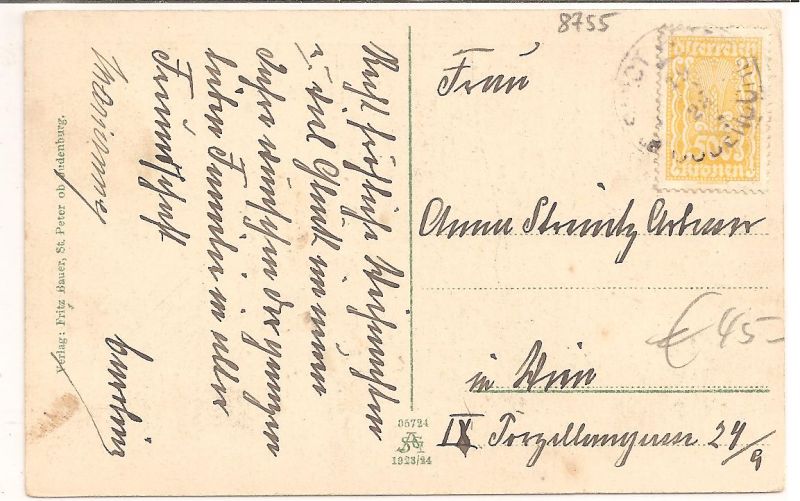 8755
Österreich
500
Kronen
Recht fröhliche Weihnachten
u. viel Glück im neuen
Jahre wünschen der ganzen
lieben Familie in aller
Freundschaft
Frau
Anna Strenitz
in Wien
IX Porzellangasse 24/9
€ 45-
Verlag: Fritz Bauer, St. Peter ob Judenburg.
05724
1923/24